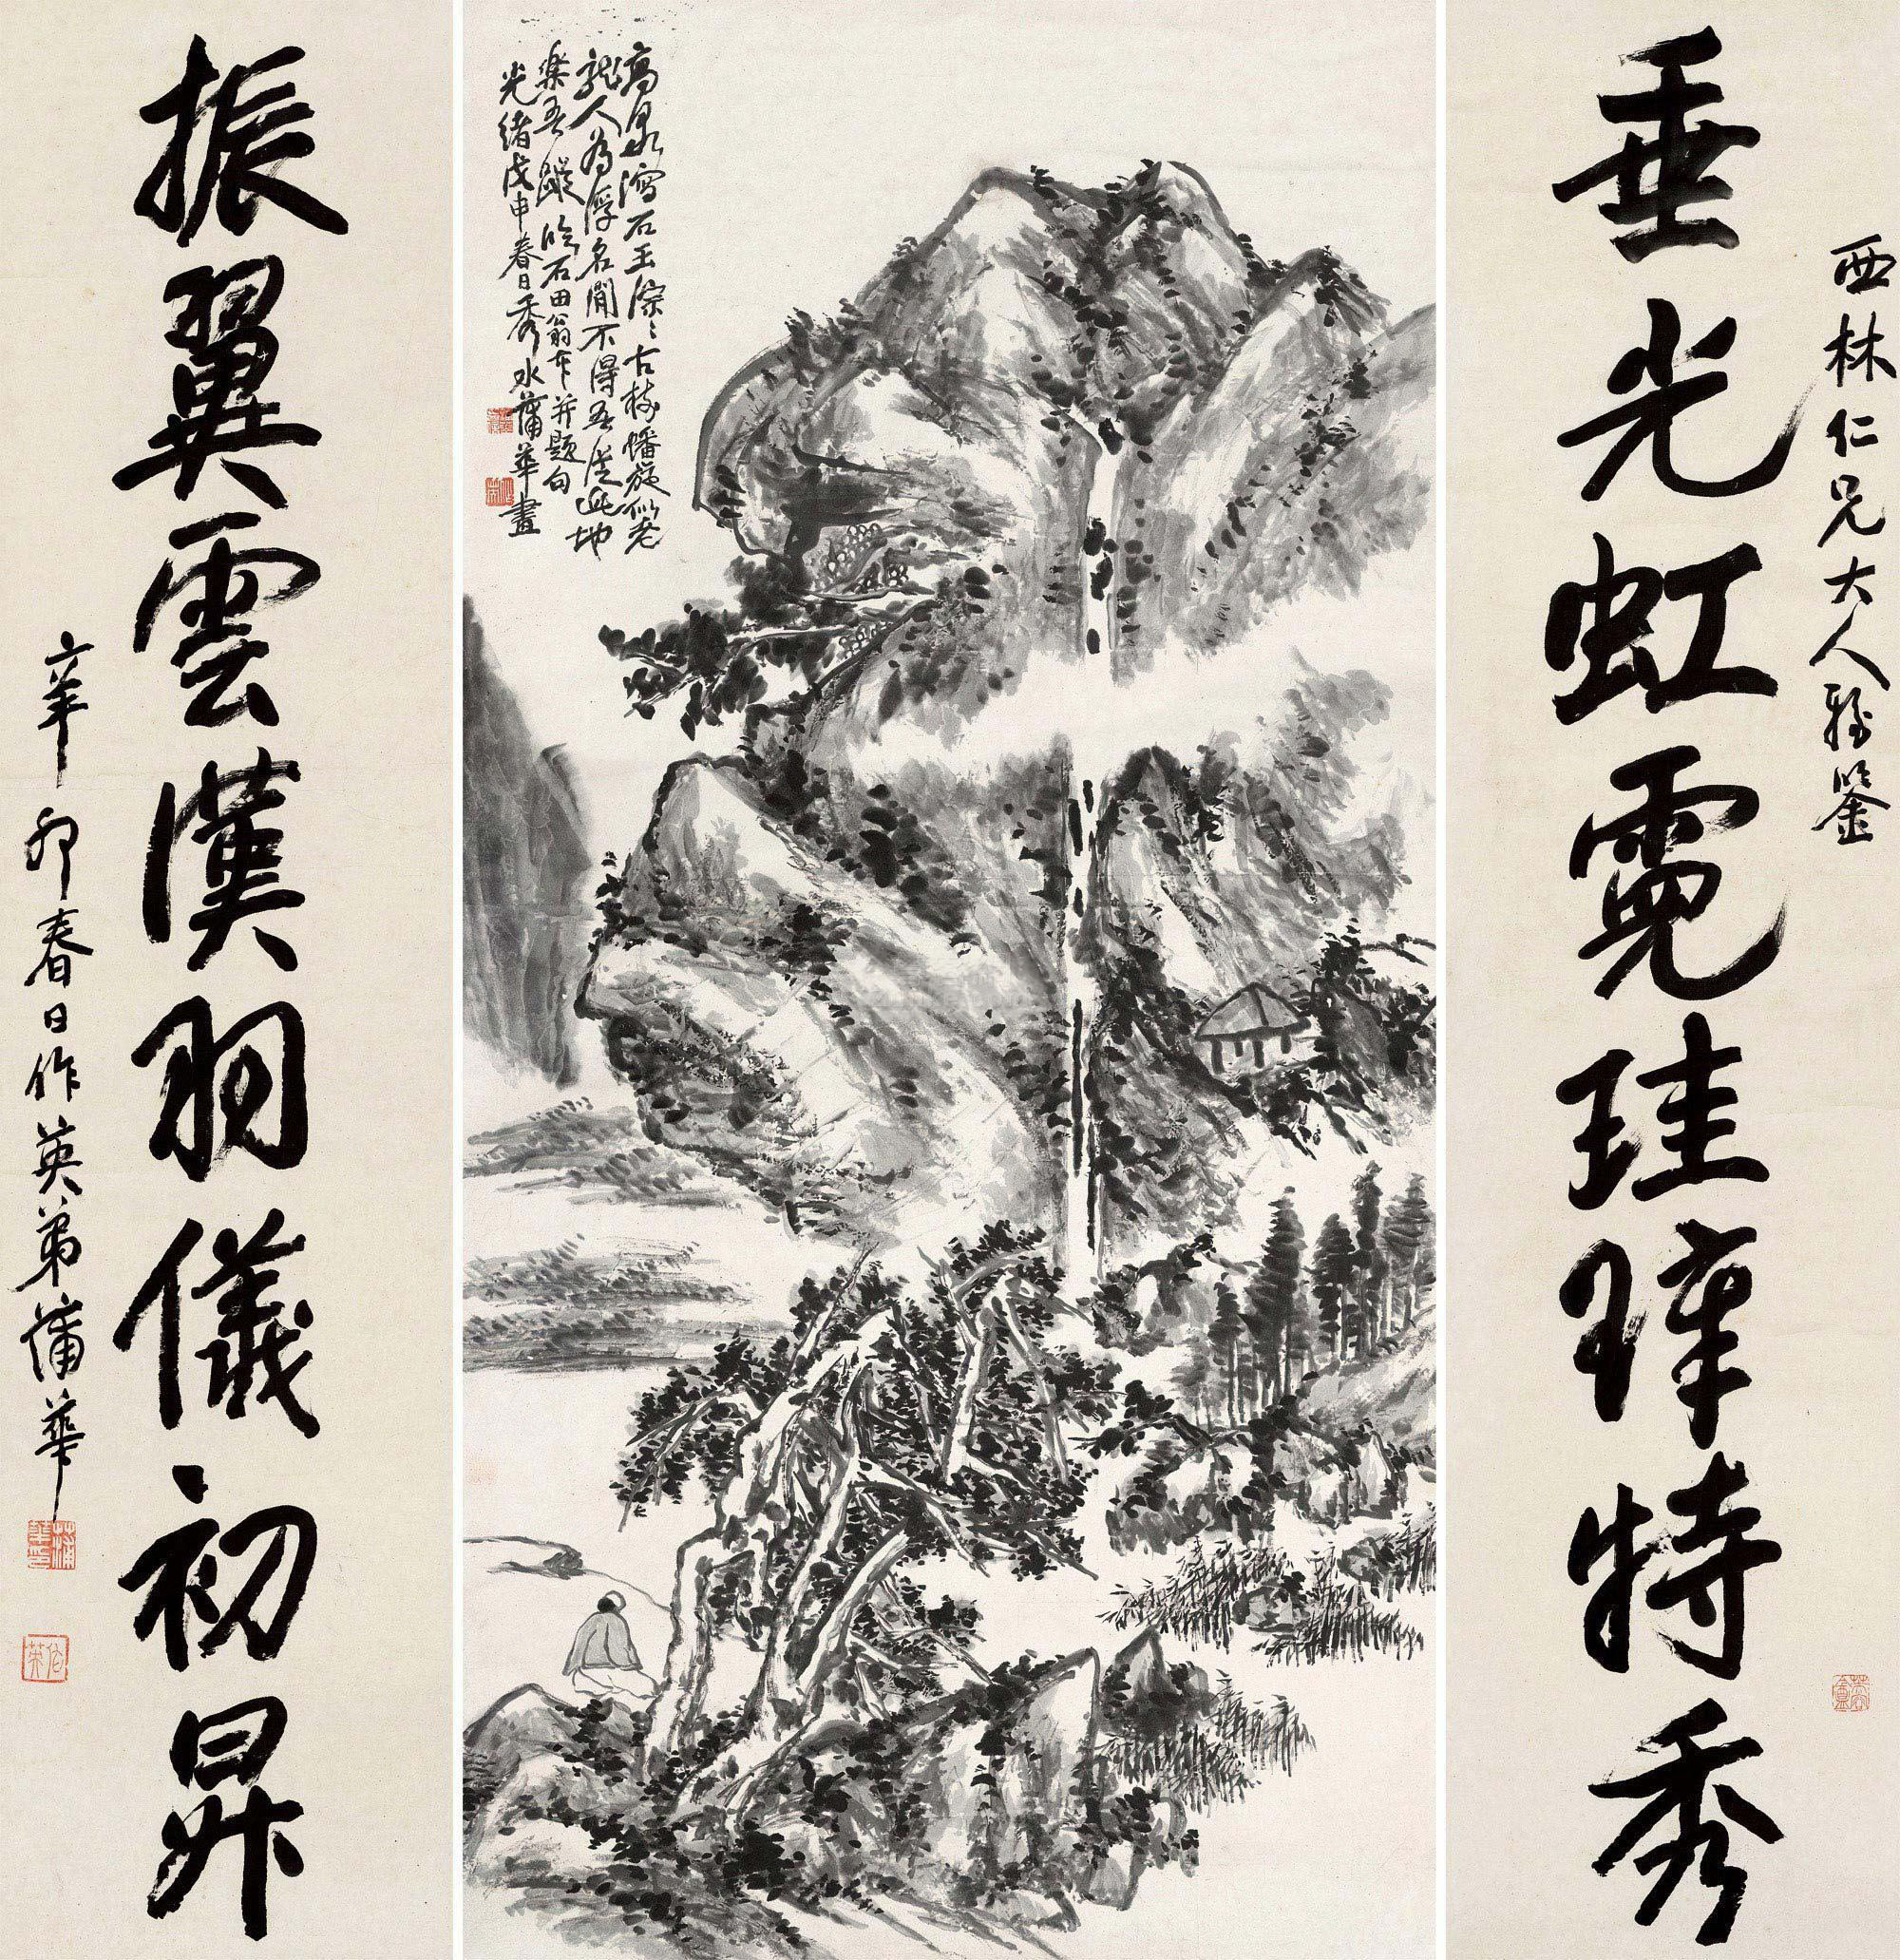 西林仁兄大人雅鑒
垂光虹霓珪璋特秀
高泉瀉石玉淙〻古樹幡旋似老
龍人為浮名閒不得吾從此地
樂吾蹤臨石田翁本并題句
光緒戊申春日秀水蒲華畫
振翼雲漢羽儀初昇
辛卯春日作英弟蒲華
作英